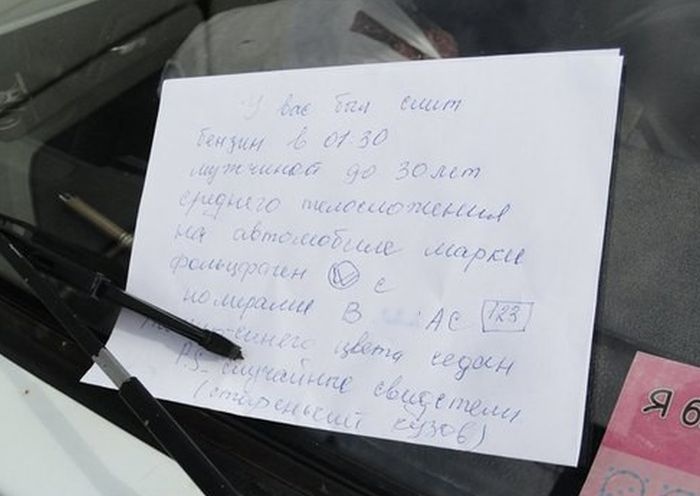 У вас был слит
бензин в 01.30
мужчиной до 30 лет
среднего телосложения
на автомобиле марки
фольцваген W с
номерами В АС 123
синего цвета седан
P.S. случайные свидетели
(старенький кузов)
Я 6